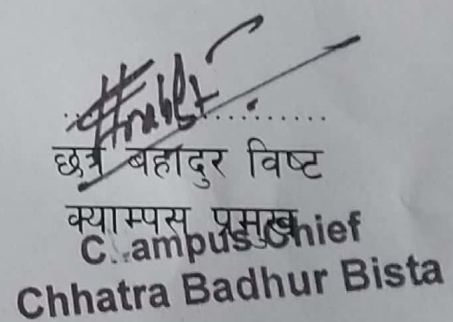 छत्र बहादुर विष्ट
क्याम्पस प्रमुख
C. ampus Chief
Chhatra Badhur Bista